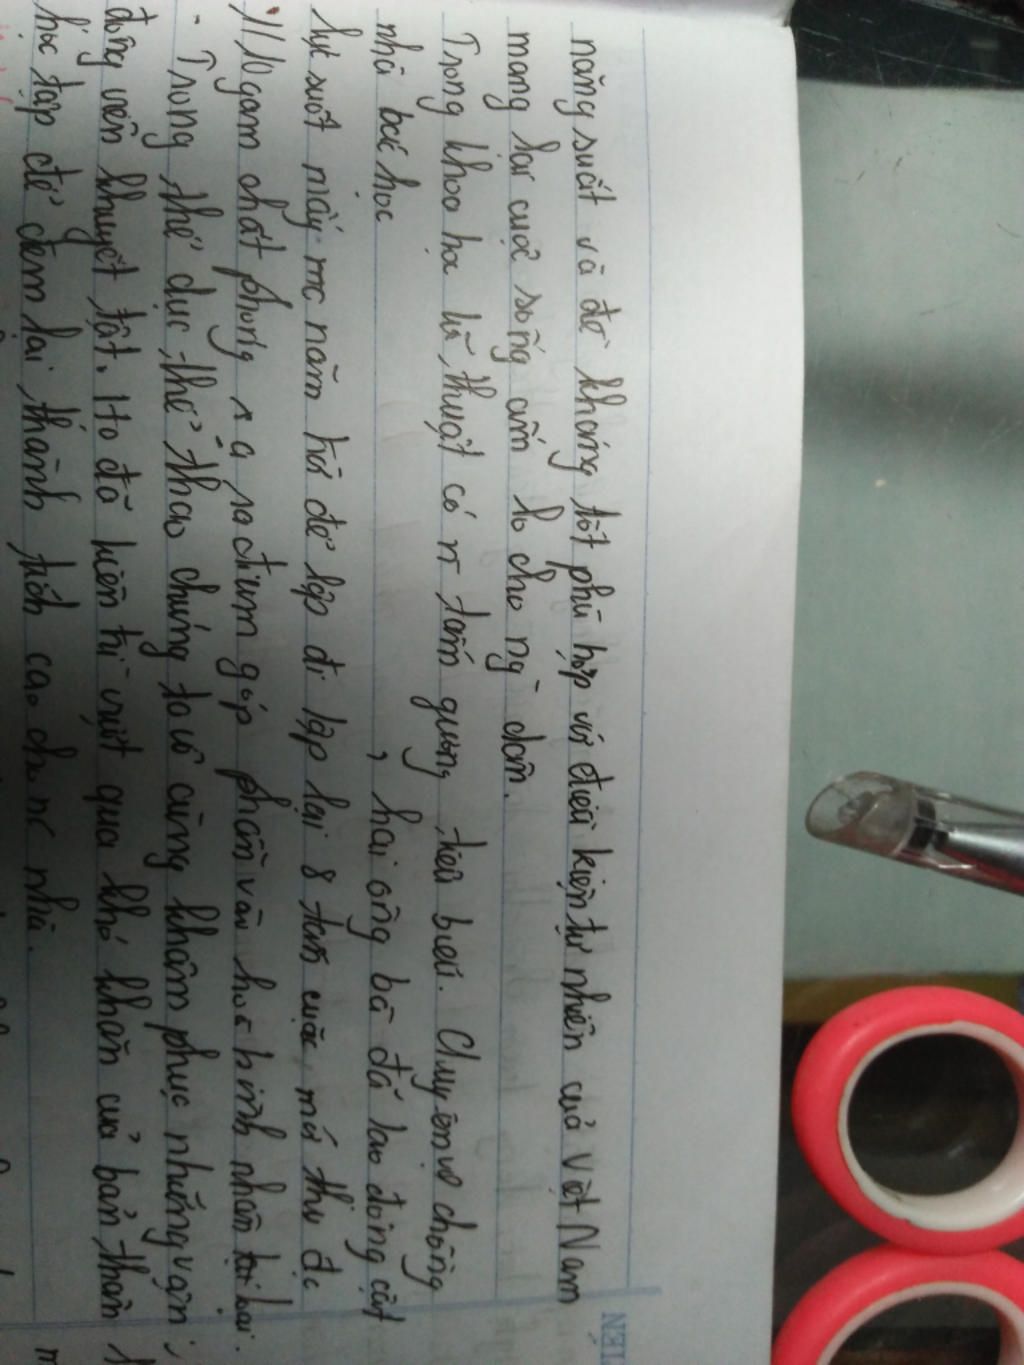 TIẾN
năng suất và đề kháng tốt phù hợp với điều kiện tự nhiên của Việt Nam
mang lại cuộc sống ấm lo cho ng` dân.
Trong khoa học kĩ thuật có n~ tấm gương tiêu biểu. Chuyện vợ chồng
nhà bác học , hai ông bà đã lao động cật
lực suốt mấy mc năm trời để lặp đi lặp lại 8 tấn quặc mới thu đc
1/10 gam chất phóng xạ rađium góp phần vào hoà bình nhân loại.
- Trong thể dục, thể thao chúng ta vô cùng khâm phục những vận
động viên khuyết tật. Họ đã kiên trì vượt qua khó khăn của bản thân
học tập để đem lại thành tích cao cho nc nhà.